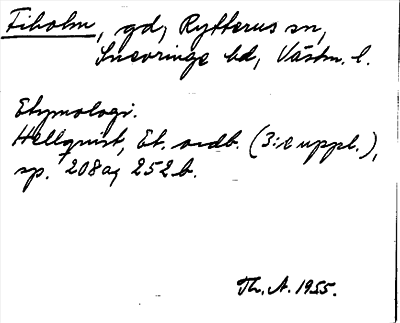 Fiholm, gd, Rytterns sn,
Snevringe hd, Västm. l.
Etymologi.
Hellquist, Et. ordb. (3:e uppl.),
sp. 208a, 252b.
Th. A. 1955.